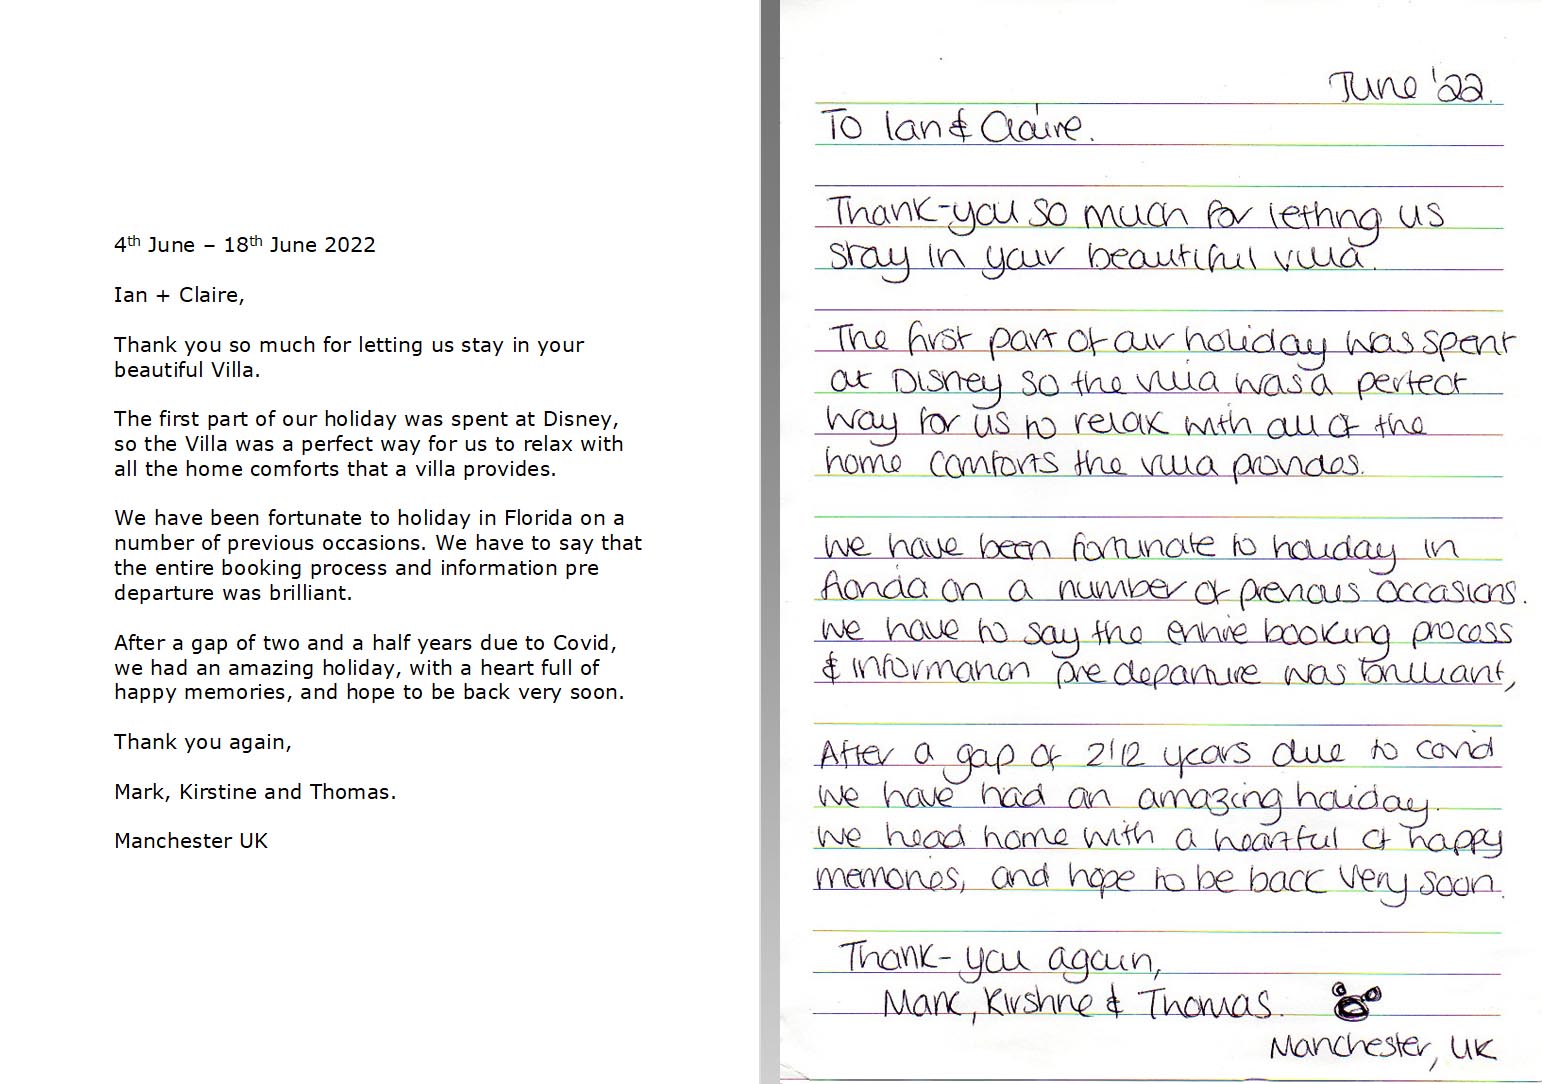 4th June – 18th June 2022
Ian + Claire,
Thank you so much for letting us stay in your
beautiful Villa.
The first part of our holiday was spent at Disney,
so the Villa was a perfect way for us to relax with
all the home comforts that a villa provides.
We have been fortunate to holiday in Florida on a
number of previous occasions. We have to say that
the entire booking process and information pre
departure was brilliant.
After a gap of two and a half years due to Covid,
we had an amazing holiday, with a heart full of
happy memories, and hope to be back very soon.
Thank you again,
Mark, Kirstine and Thomas.
Manchester UK
June '22.
To Ian & Claire.
Thank-you so much for letting us
stay in your beautiful villa.
The first part of our holiday was spent
at Disney so the villa was a perfect
way for us to relax with all of the
home comforts the villa provides.
We have been fortunate to holiday in
florida on a number of previous occasions.
We have to say the entire booking process
& information pre departure was brilliant,
After a gap of 2 1/2 years due to covid
we have had an amazing holiday.
We head home with a heartful of happy
memories, and hope to be back very soon.
Thank-you again,
Mark, Kirstine & Thomas.
Manchester, UK